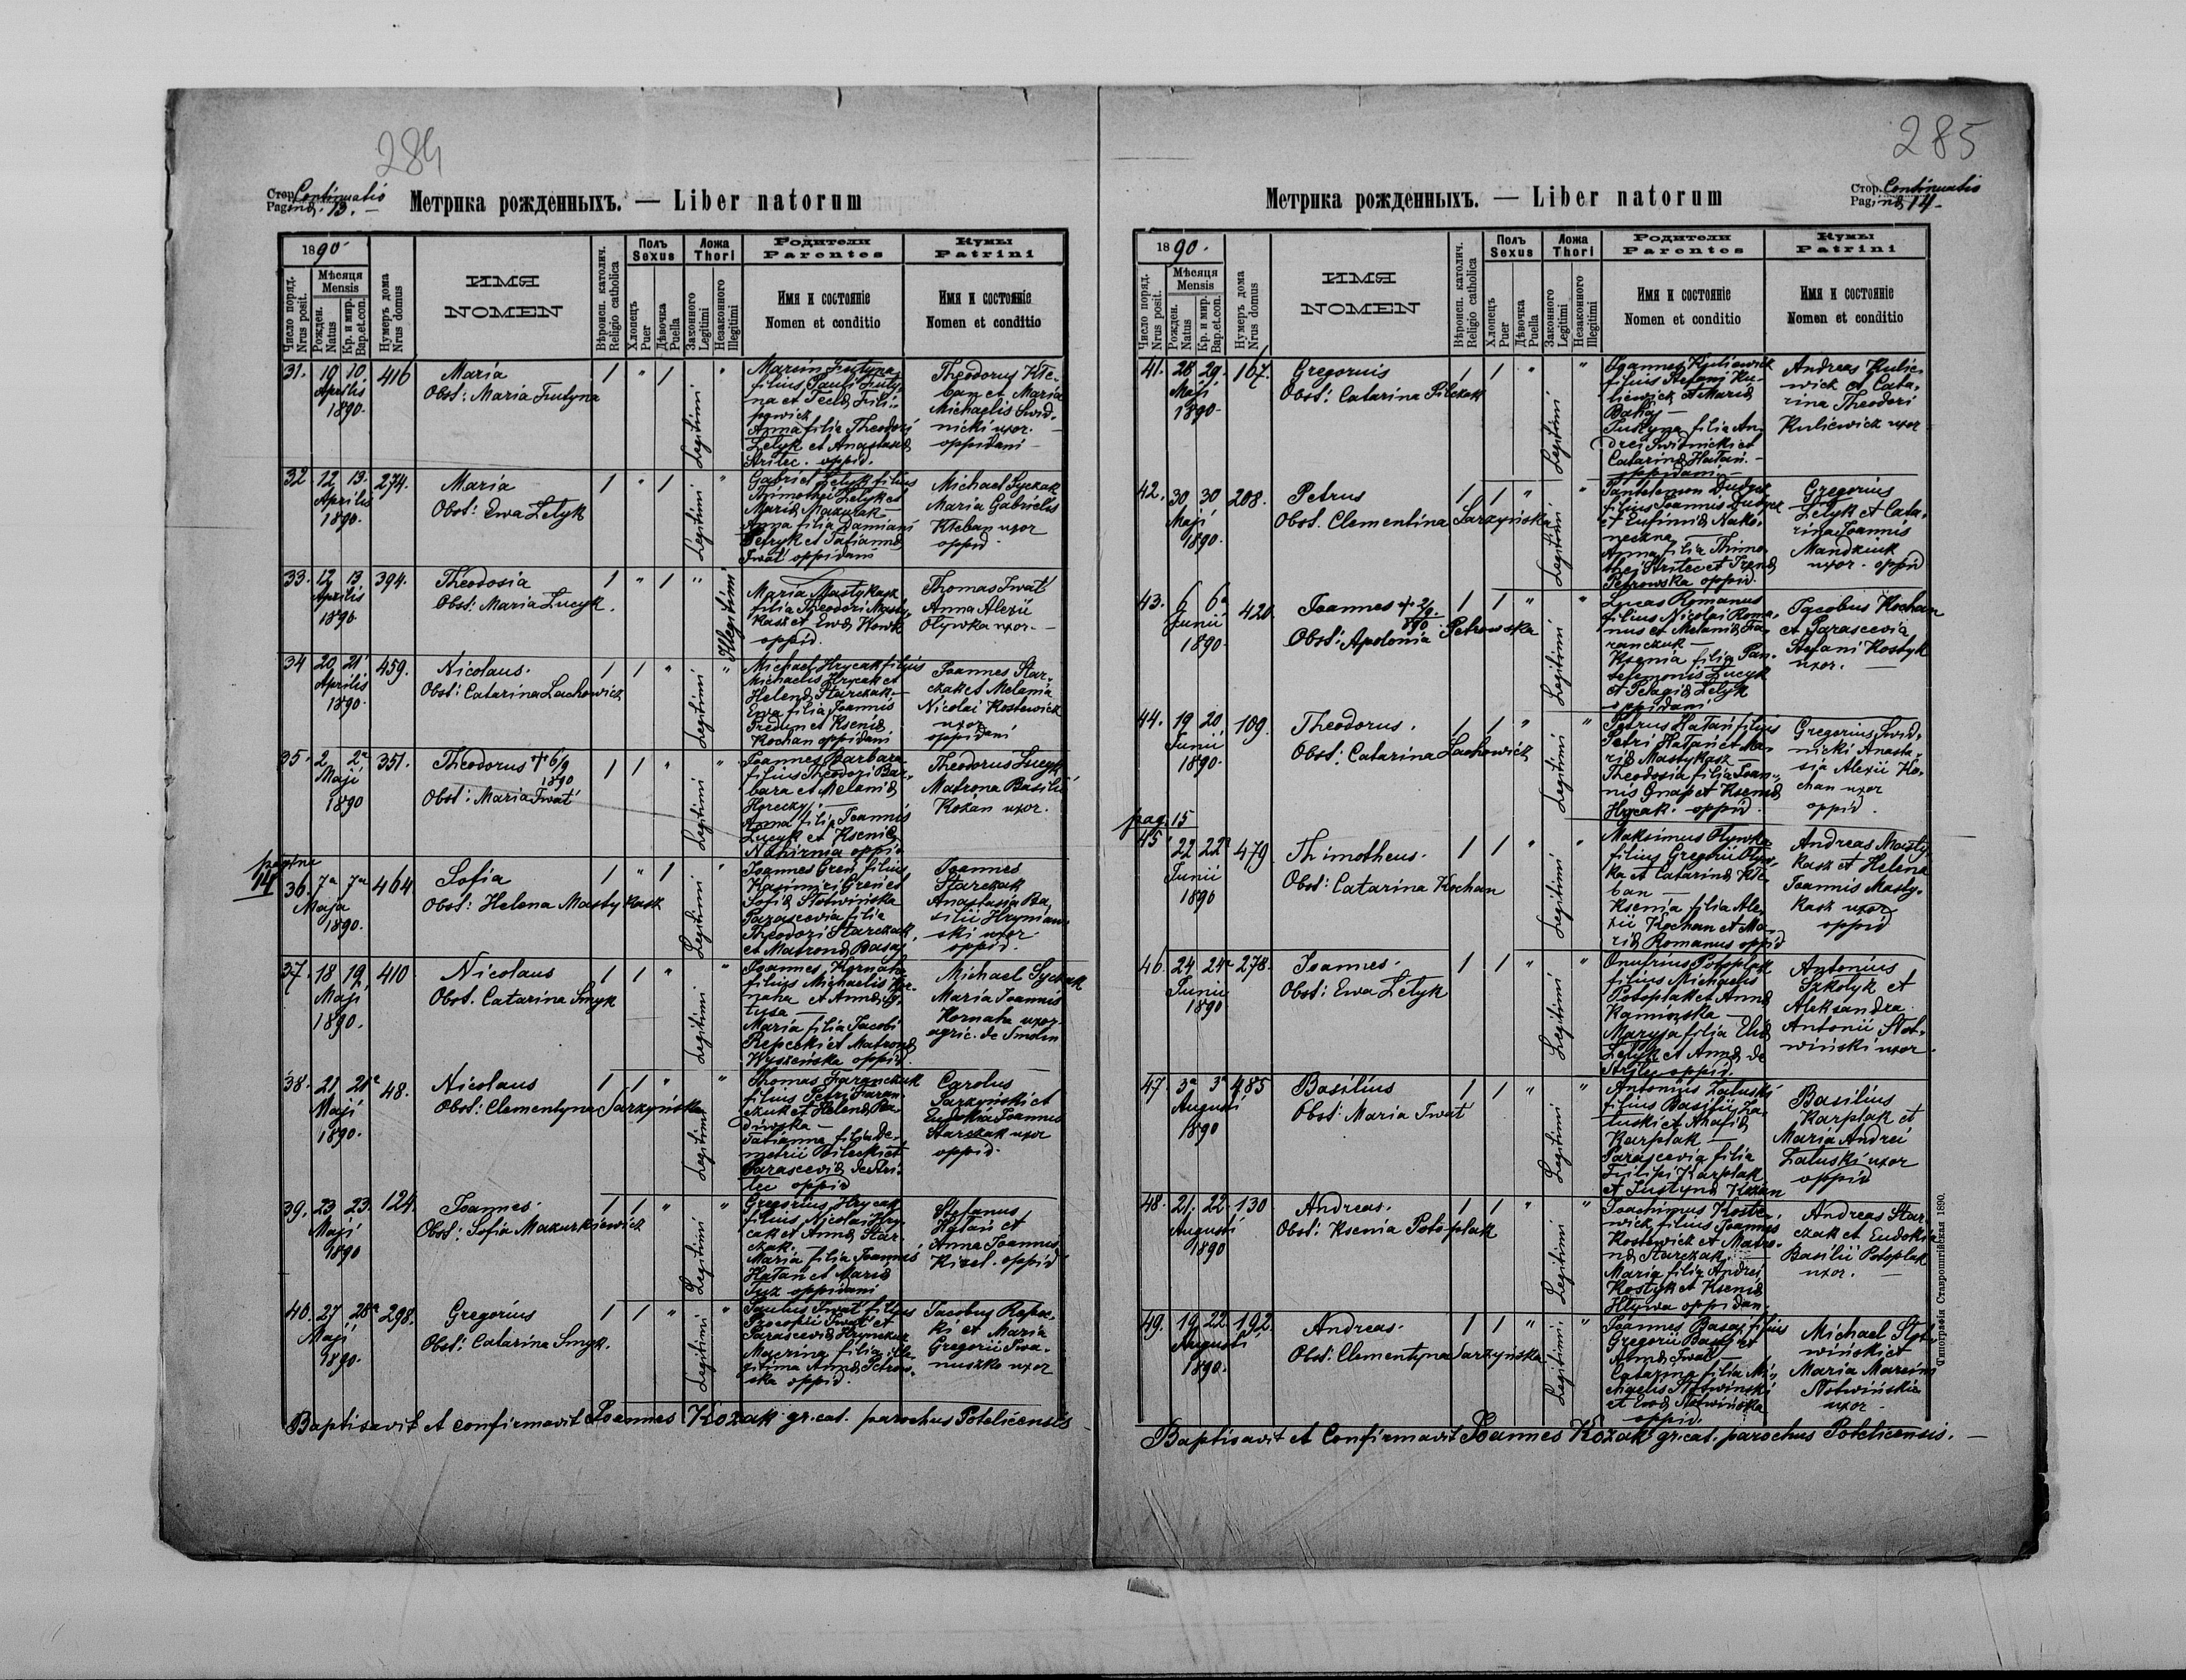 284
Стор. Continuatio
Pag. ind. 13. –
Метрика рожденныхъ. — Liber natorum
1890
Число поряд.
Nrus posit.
Мѣсяця
Mensis
Рожден.
Natus
Кр. и мир.
Bap.et.con.
Нумеръ дома
Nrus domus
ИМЯ
NOMEN
Вѣроисп. католич.
Religio catholica
Полъ
Sexus
Хлопецъ
Puer
Дѣвочка
Puella
Ложа
Thori
Законного
Legitimi
Незаконного
Illegitimi
Родители
Parentes
Имя и состояніе
Nomen et conditio
Кумы
Patrini
Имя и состояніе
Nomen et conditio
31. 19 10 416 Maria 1 " 1 "
Aprilis
1890.
Obst: Maria Frutyna
Legitimi
filius Pauli
Anna filia Theodori
Lelyk et Anastasiæ
Strilec. oppid.
Theodorus Kle-
ban et Maria
Michaelis Swid-
nicki uxor.
oppidani
32. 12 13. 274. Maria 1 " 1 "
Aprilis
1890.
Obst: Ewa Lelyk
Legitimi
Gabriel Lelyk filius
Timothei Lelyk et
Mariæ Mazurak
Anna filia Damiani
Petryk et Tatiannæ
Iwat' oppidani
Michael Syczak
Maria Gabrielis
Kleban uxor
oppid.
33. 12 13 394. Theodosia 1 " 1 "
Aprilis
1890
Obst: Maria Lucyk.
Illegitimi
Maria Mastykasz
filia Theodori Masty-
kasz et Ewæ Kowk
oppid.
Thomas Iwat'
Anna Alexii
Olywka uxor. –
34 20 21 459. Nicolaus. 1 1 " "
Aprilis
1890.
Obst: Catarina Lachowicz
Legitimi
Michael Hrycak filius
Michaelis Hrycak et
Helenæ Starczak –
Ewa filia Joannis
Fredun et Kseniæ
Kochan oppidani
Joannes Star-
czak et Melania
Nicolai Kostewicz
uxor
oppidani
35. 2 2ª 351. Theodorus + 6/9 1890 1 1 " "
Maji
1890
Obst: Maria Iwat'
Legitimi
Joannes Barbara
filius Theodori Bar-
bara et Melaniæ
Horeczy –
Anna filia Joannis
Lucyk et Kseniæ
Nahirnia oppid
Theodorus Lucyk
Matrona Basilii
Kozan uxor.
pagina
14
36. 7ª 7ª 464 Sofia 1 " 1 "
Maja
1890.
Obst: Helena Mastykasz
Legitimi
Joannes Gren filius
Kasimiri Gren et
Sofiæ Slotwińska
Parascevia filia
Theodori Starczak
et Matronæ Basaj
Joannes
Starczak
Anastasia Ba-
silii Hryniaw-
ski uxor.
oppid.
37. 18 19 410 Nicolaus 1 1 " "
Maji
1890.
Obst. Catarina Smyk
Legitimi
Joannes Kornaha
filius Michaelis Kor-
naha et Annæ
Maria filia Jacobi
Repecki et Matronæ
Wyszeńska oppid
Michael Syczak
Maria Joannis
Kornaha uxor
agric. de Smolin
38. 21 21ª 48. Nicolaus 1 1 " "
Maji
1890.
Obst: Clementyna Sarzyńska
Legitimi
Thomas Faranczuk
filius Petri Faran-
czuk et Helenæ Ra-
dawska –
Tatianna filia De-
metrii Bilecki et
Parasceviæ de Stri-
lec oppid
Carolus
Sarzyński et
Eudokia Joannis
Starczak uxor
oppid.
39. 23 23. 124. Joannes. 1 1 " "
Maji
1890
Obst: Sofia Mazurkiewicz
Legitimi
Gregorius Hrycak
filius Nicolai Hry-
cak et Annæ Star-
czak. –
Maria filia Joannis
Hatan et Mariæ
Fuz oppidani
Stefanus
Hatan et
Anna Joannis
Kizel. oppid
40. 27 28ª 298. Gregorius 1 1 " "
Maji
1890.
Obst: Catarina Smyk.
Legitimi
Paulus Iwat' filius
Procopii Iwat' et
Parasceviæ Hrynczuk
Macrina filia ille-
gitima Annæ Petrow-
ska oppid.
Jacobus Repec-
ki et Maria
Gregorii Iwa-
nuszko uxor
Baptisavit et confirmavit Joannes Kozak gr. cat. parochus Potelicensis
285
Метрика рожденныхъ. — Liber natorum
Стор. Continuatio
Pag. ind 14 –
1890.
Число поряд.
Nrus posit.
Мѣсяця
Mensis
Рожден.
Natus
Кр. и мир.
Bap.et.con.
Нумеръ дома
Nrus domus
ИМЯ
NOMEN
Вѣроисп. католич.
Religio catholica
Полъ
Sexus
Хлопецъ
Puer
Дѣвочка
Puella
Ложа
Thori
Законного
Legitimi
Незаконного
Illegitimi
Родители
Parentes
Имя и состояніе
Nomen et conditio
Кумы
Patrini
Имя и состояніе
Nomen et conditio
41. 28 29. 167. Gregorius 1 1 " "
Maji
1890.
Obst: Catarina Pilczak
Legitimi
Joannes Kuliewicz
filius Stefani Ku-
liewicz et Mariæ
Justyna filia An-
drei Swidnicki et
Catarinæ Hatan. –
oppidani –
Andreas Kulie-
wicz et Cata-
rina Theodori
Kuliewicz uxor
42. 30 30 208. Petrus 1 1 " "
Maji
1890.
Obst. Clementina Sarzyńska
Legitimi
Panteleimon Dudycz
filius Joannis Dudycz
et Eufimiæ Nako-
neczna –
Anna filia Thimo-
thei Strilec et Irenæ
Petrowska oppid.
Gregorius
Lelyk et Cata-
rina Joannis
Mandziuk
uxor. oppid
43. 6 6ª 420. Joannes + 2/9 890 1 1 " "
Junii
1890.
Obst: Apolonia Petrowska
Legitimi
Lucas Romanus
filius Nicolai Roma-
nus et Melaniæ Fa-
ranczuk –
Ksenia filia Pan-
teleimonis Lucyk
et Pelagiæ Lelyk
oppidani
Jacobus Kochan
et Parascevia
Stefani Kostyk
uxor. –
44. 19 20 109. Theodorus. 1 1 " "
Junii
1890.
Obst: Catarina Lachowicz
Legitimi
Petrus Hatan filius
Petri Hatan et Ma-
riæ Mastykasz –
Theodosia filia Joan-
nis Gnap et Kseniæ
Hrycak. oppid.
Gregorius Swid-
nicki Anasta-
sia Alexii Ko-
chan uxor
oppid.
pag. 15
45 22 22ª 479 Thimotheus. 1 1 " "
Junii
1890
Obst: Catarina Kochan
Legitimi
Maksimus Olywka
filius Gregorii Olyw-
ka et Catarinæ Kle-
ban –
Ksenia filia Ale-
xii Kochan et Ma-
riæ Romanus oppid
Andreas Masty-
kasz et Helena
Joannis Masty-
kasz uxor
oppid
46. 24 24ª 278. Joannes. 1 1 " "
Junii
1890
Obst: Ewa Lelyk
Legitimi
Onufrius Potoplak
filius Michaelis
Potoplak et Annæ
Maryja filia Eliæ
Lelyk et Annæ de
Strilec oppid.
Antonius
Szkolyk et
Aleksandra
Antonii Slot-
wiński uxor.
47. 3ª 3ª 485 Basilius 1 1 " "
Augusti
1890
Obst: Maria Iwat'
Legitimi
Antonius Zaluski
filius Basilii Za-
luski et Anafiæ
Karplak –
Parascevia filia
Filipi Karplak
et Justynæ Kozan
Basilius
Karplak et
Maria Andrei
Zaluski uxor
oppid
48. 21. 22. 130 Andreas. 1 1 " "
Augusti
1890
Obst: Ksenia Potoplak
Legitimi
Joachimus Koste-
wicz filius Joannis
Kostewicz et Matro-
næ Starczak. –
Maria filia Andrei
Kostyk et Kseniæ
Hlywa oppidan.
Andreas Star-
czak et Eudokia
Basilii Potoplak
uxor. –
49. 19 22. 192. Andreas. 1 1 " "
Augusti
1890.
Obst: Clementyna Sarzyńska
Legitimi.
Joannes Basaj filius
Gregorii Basaj et
Annæ Iwat' –
Catarina filia Mi-
chaelis Slotwiński
et Ewæ Slotwińska
oppid.
Michael Slot-
wiński et
Maria Marcini
Slotwińskia
uxor.
Baptisavit et Confirmavit Joannes Kozak gr. cat. parochus Potelicensis. –
Типографія Ставропигійская 1890.